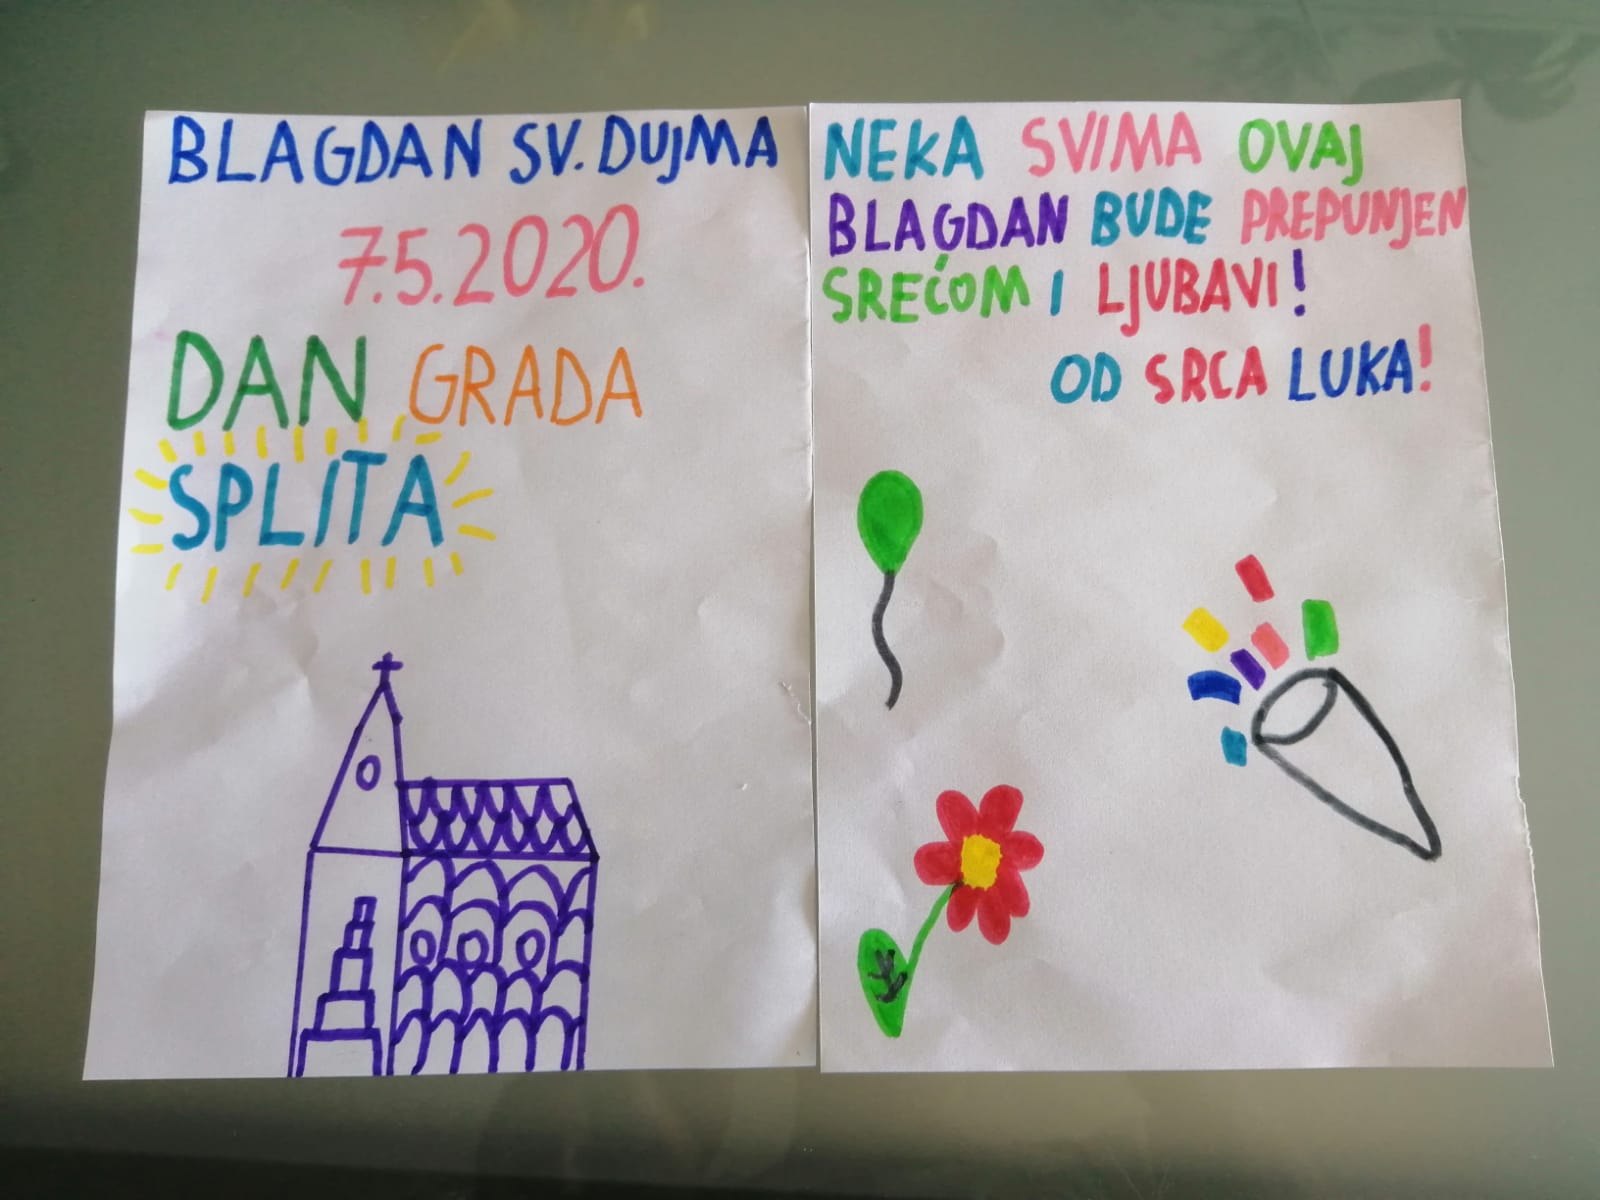 BLAGDAN SV. DUJMA
7.5.2020.
DAN GRADA
SPLITA
NEKA SVIMA OVAJ
BLAGDAN BUDE PREPUNJEN
SREĆOM I LJUBAVI!
OD SRCA LUKA!